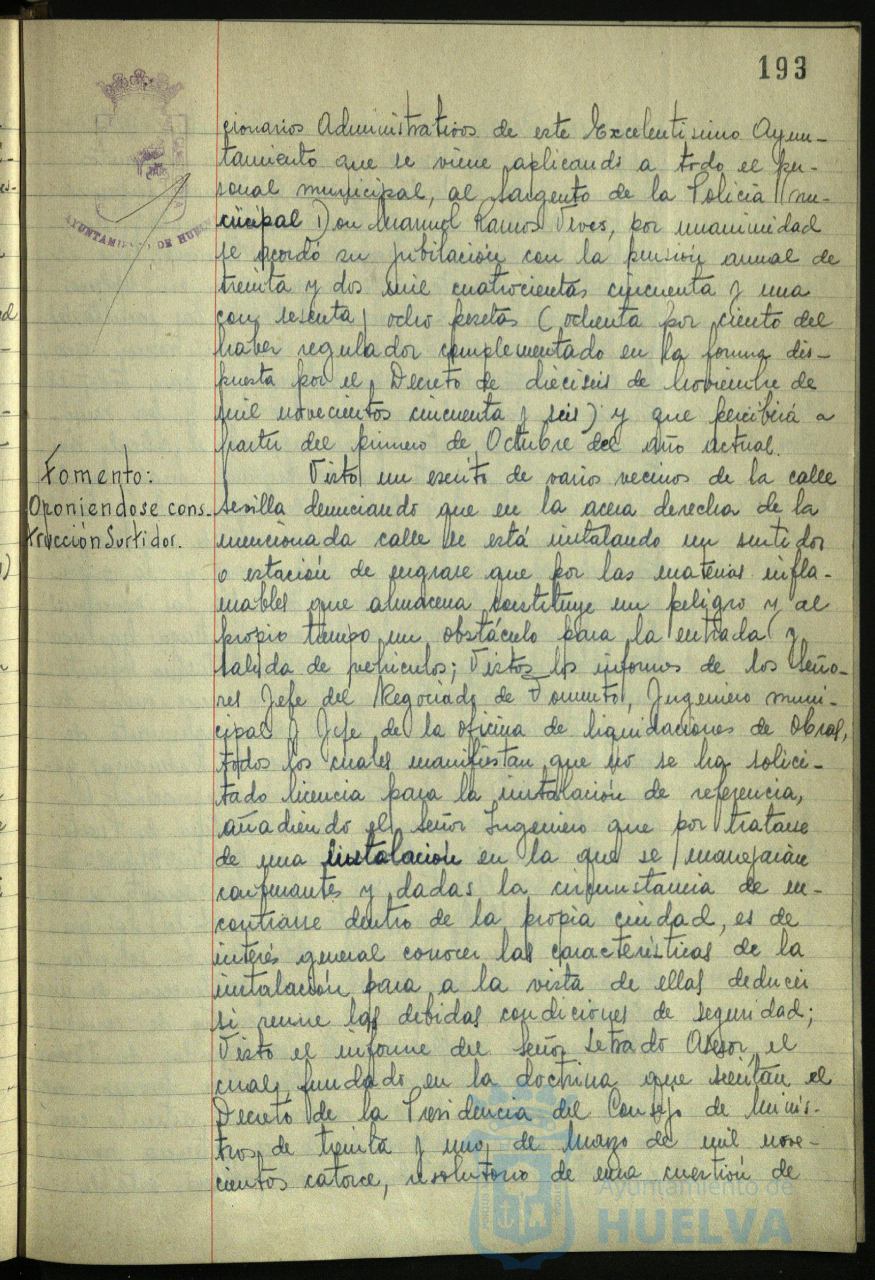 193
cionarios Administrativos de este Excelentísimo Ayun-
tamiento que se viene aplicando a todo el per-
sonal municipal, al Sargento de la Policia mu-
nicipal Don Manuel Ramos Vives, por unanimidad
se acordó su jubilación con la pensión anual de
treinta y dos mil cuatrocientas cincuenta y una
con sesenta y ocho pesetas (ochenta por ciento del
haber regulador complementado en la forma dis-
puesta por el Decreto de dieciseis de Noviembre de
mil novecientos cincuenta y seis) y que percibirá a
partir del primero de Octubre del año actual.
Fomento:
Oponiendose cons-
trucción Surtidor.
Visto un escrito de varios vecinos de la calle
Sevilla denunciando que en la acera derecha de la
mencionada calle se está instalando un surtidor
o estación de engrase que por las materias infla-
mables que almacena constituye un peligro y al
propio tiempo un obstáculo para la entrada y
salida de vehiculos; Vistos los informes de los Seño-
res Jefe del Negociado de Fomento, Ingeniero muni-
cipal y Jefe de la oficina de liquidaciones de Obras,
todos los cuales manifiestan que no se ha solici-
tado licencia para la instalación de referencia,
añadiendo el Señor Ingeniero que por tratarse
de una instalación en la que se manejarán
carburantes y dadas la circunstancia de en-
contrarse dentro de la propia ciudad, es de
interés general conocer las características de la
instalación para a la vista de ellas deducir
si reune las debidas condiciones de seguridad;
Visto el informe del Señor Letrado Asesor, el
cual, fundado en la doctrina que sientan el
Decreto de la Presidencia del Consejo de Minis-
tros, de treinta y uno, de Marzo de mil nove-
cientos catorce, resolutorio de una cuestión de
AYUNTAMIENTO DE HUELVA
Ayuntamiento de
HUELVA